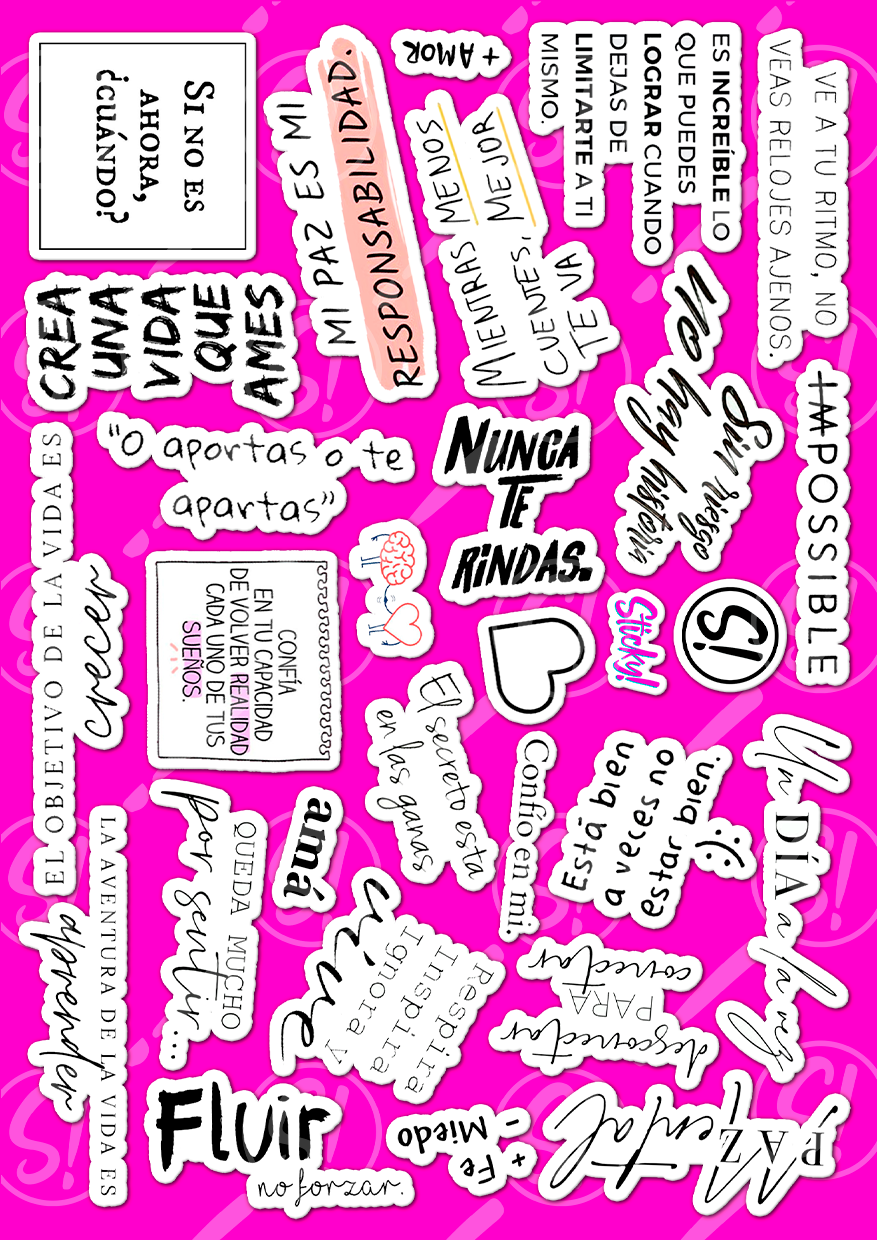 SI NO ES
AHORA,
¿CUÁNDO?
MI PAZ ES MI
RESPONSABILIDAD.
+ AMOR
MIENTRAS MENOS
CUENTES, MEJOR
TE VA
ES INCREÍBLE LO
QUE PUEDES
LOGRAR CUANDO
DEJAS DE
LIMITARTE A TI
MISMO.
VE A TU RITMO, NO
VEAS RELOJES AJENOS.
CREA
UNA
VIDA
QUE
AMES
Sin riesgo
No hay historia
IMPOSSIBLE
"O aportas o te
apartas"
NUNCA
TE
RINDAS.
EL OBJETIVO DE LA VIDA ES
crecer
CONFÍA
EN TU CAPACIDAD
DE VOLVER REALIDAD
CADA UNO DE TUS
SUEÑOS.
Sticky!
S!
El secreto esta
en las ganas
Confío en mi.
Está bien
a veces no
estar bien.
:(
Un DÍA a la vez
QUEDA MUCHO
por sentir...
amá
Respira
Inspira
Ignora y
vive
conectar
PARA
desconectar
LA AVENTURA DE LA VIDA ES
aprender
Fluir
no forzar.
+ Fe
- Miedo
PAZ
Mental